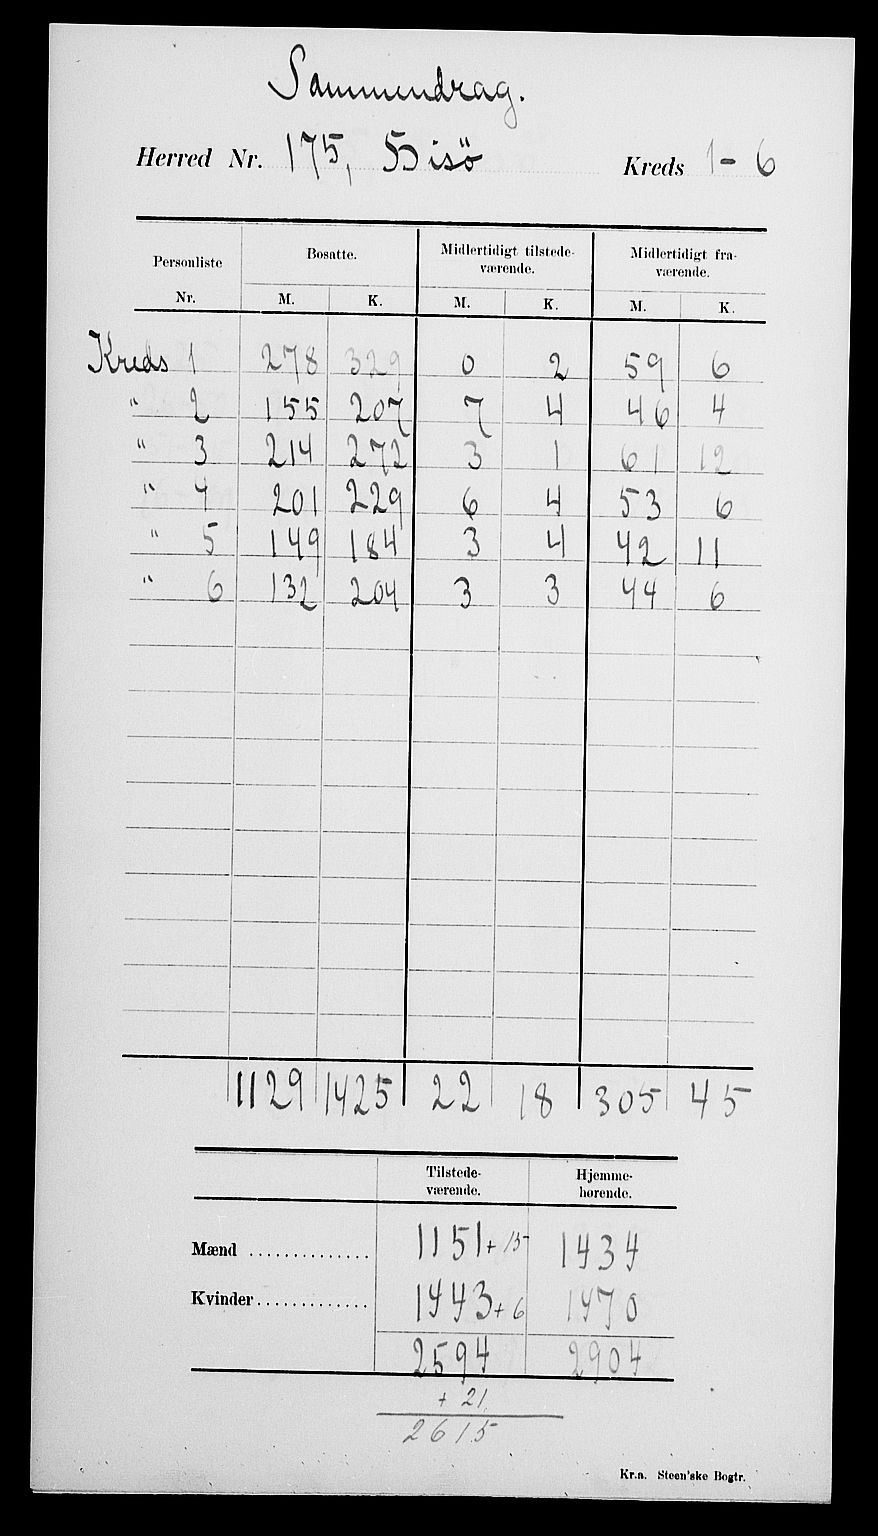 Sammendrag.
Herred Nr. 175, Hisö Kreds 1-6
Personliste Nr. Bosatte. Midlertidigt tilstedeværende. Midlertidigt fraværende.
M. K. M. K. M. K.
Kreds 1 278 329 0 2 59 6
" 2 155 207 7 4 46 4
" 3 214 272 3 1 61 12
" 4 201 229 6 4 53 6
" 5 149 184 3 4 42 11
" 6 132 204 3 3 44 6
1129 1425 22 18 305 45
Tilstedeværende. Hjemmehørende.
Mænd .............. 1151 + 15 1434
Kvinder ............. 1443 + 6 1470
2594 2904
+ 21
2615
Kr.a. Steen'ske Bogtr.